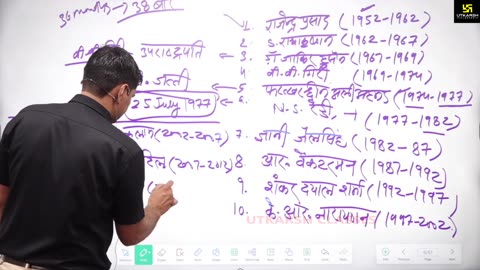 38 बार
1. राजेन्द्र प्रसाद (1952-1962)
2. S. राधाकृष्णन (1962-1967)
वी.वी. गिरी उपराष्ट्रपति 3. डॉ जाकिर हुसैन (1967-1969)
4. वी. वी. गिरी (1969-1974)
जत्ती 5. फखरुद्दीन अली अहमद (1974-1977)
25 July 1977 6. N.S. रेड्डी → (1977-1982)
कलाम (2002-2007) 7. ज्ञानी जैलसिंह (1982-87)
(2007-2012) 8 आर. वेंकटरमन (1987-1992)
9. शंकर दयाल शर्मा (1992-1997
10. के. आर. नारायणन (1997-2002)
UTKARSH CLASSES